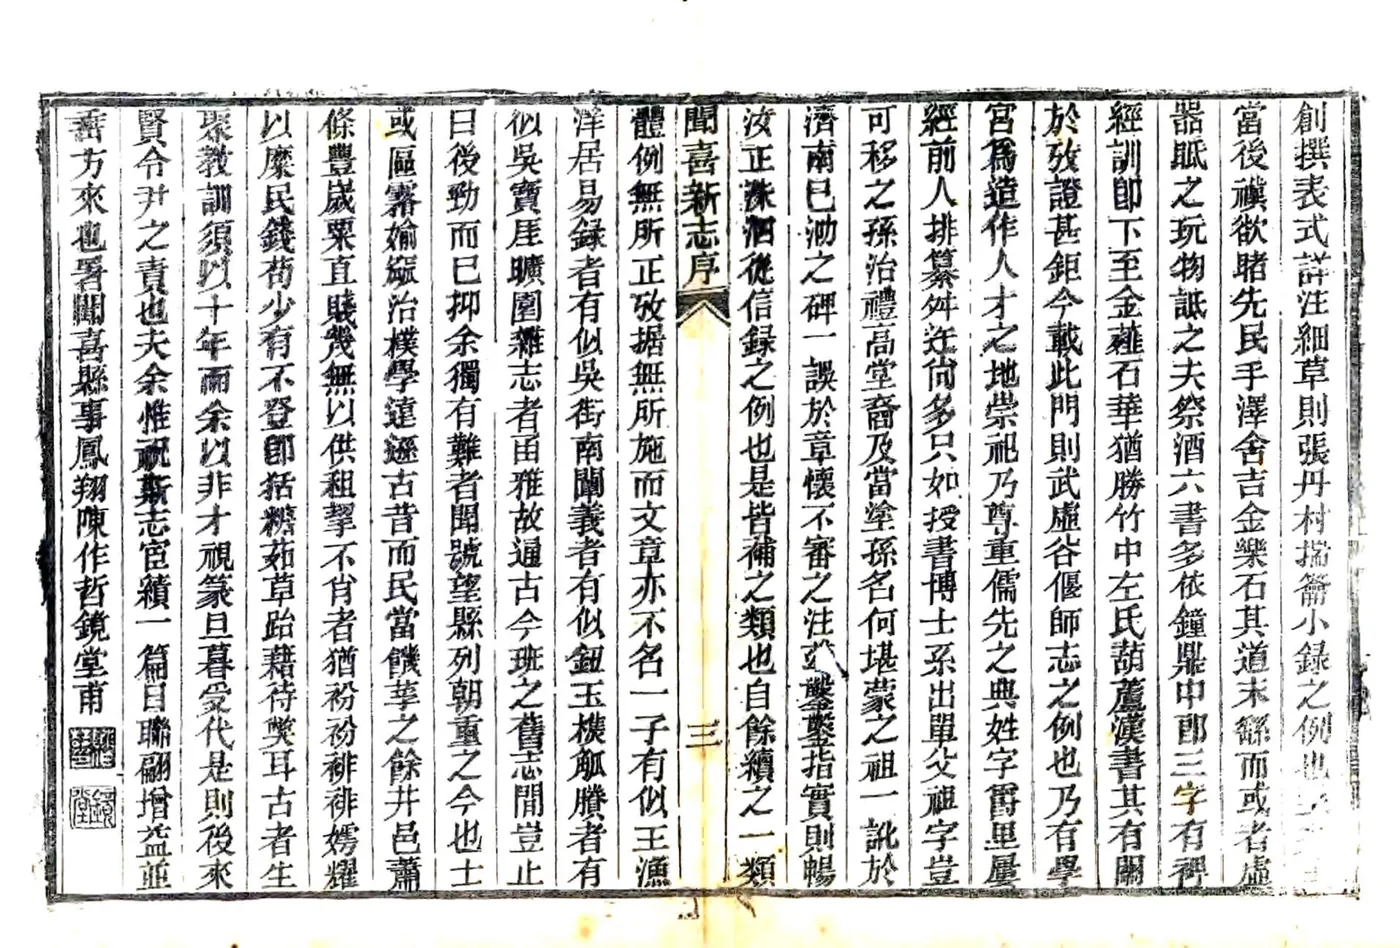 創撰表式詳注細草則張丹村揣籥小録之例也
當後禩欲睹先民手澤舍吉金樂石其道末繇而或者虛
器眂之玩物詆之夫祭酒六書多依鐘鼎中郎三字有裨
經訓卽下至金薤石華猶勝竹中左氏葫蘆漢書其有關
於攷證甚鉅今載此門則武虛谷偃師志之例也乃有學
宮爲造作人才之地崇祀乃尊重儒先之典姓字爵里屢
經前人排纂舛迕尙多只如授書博士系出單父祖字豈
可移之孫治禮高堂裔及當塗孫名何堪蒙之祖一訛於
濟南已泐之碑一誤於章懷不審之注鑿鑿指實則暢
汝正洙泗從信録之例也是皆補之類也自餘續之一類
聞喜新志序
三
體例無所正攷据無所施而文章亦不名一子有似王漁
洋居易録者有似吳街南闡義者有似鈕玉樵觚賸者有
似吳寶厓曠園雜志者亩雅故通古今班之舊志閒豈止
曰後勁而已抑余獨有難者聞號望縣列朝重之今也士
或區霿婾窳治樸學遠遜古昔而民當饑莩之餘井邑蕭
條豐歲粟直賤幾無以供租挈不肖者猶衯衯裶裶嫮燿
以縻民錢苟少有不登卽𦧇穅茹草跆藉待獘耳古者生
聚教訓須以十年而余以非才視篆旦暮受代是則後來
賢令尹之責也夫余惟祝斯志宦績一篇日聯翩增益並
善方來也署聞喜縣事鳳翔陳作哲鏡堂甫